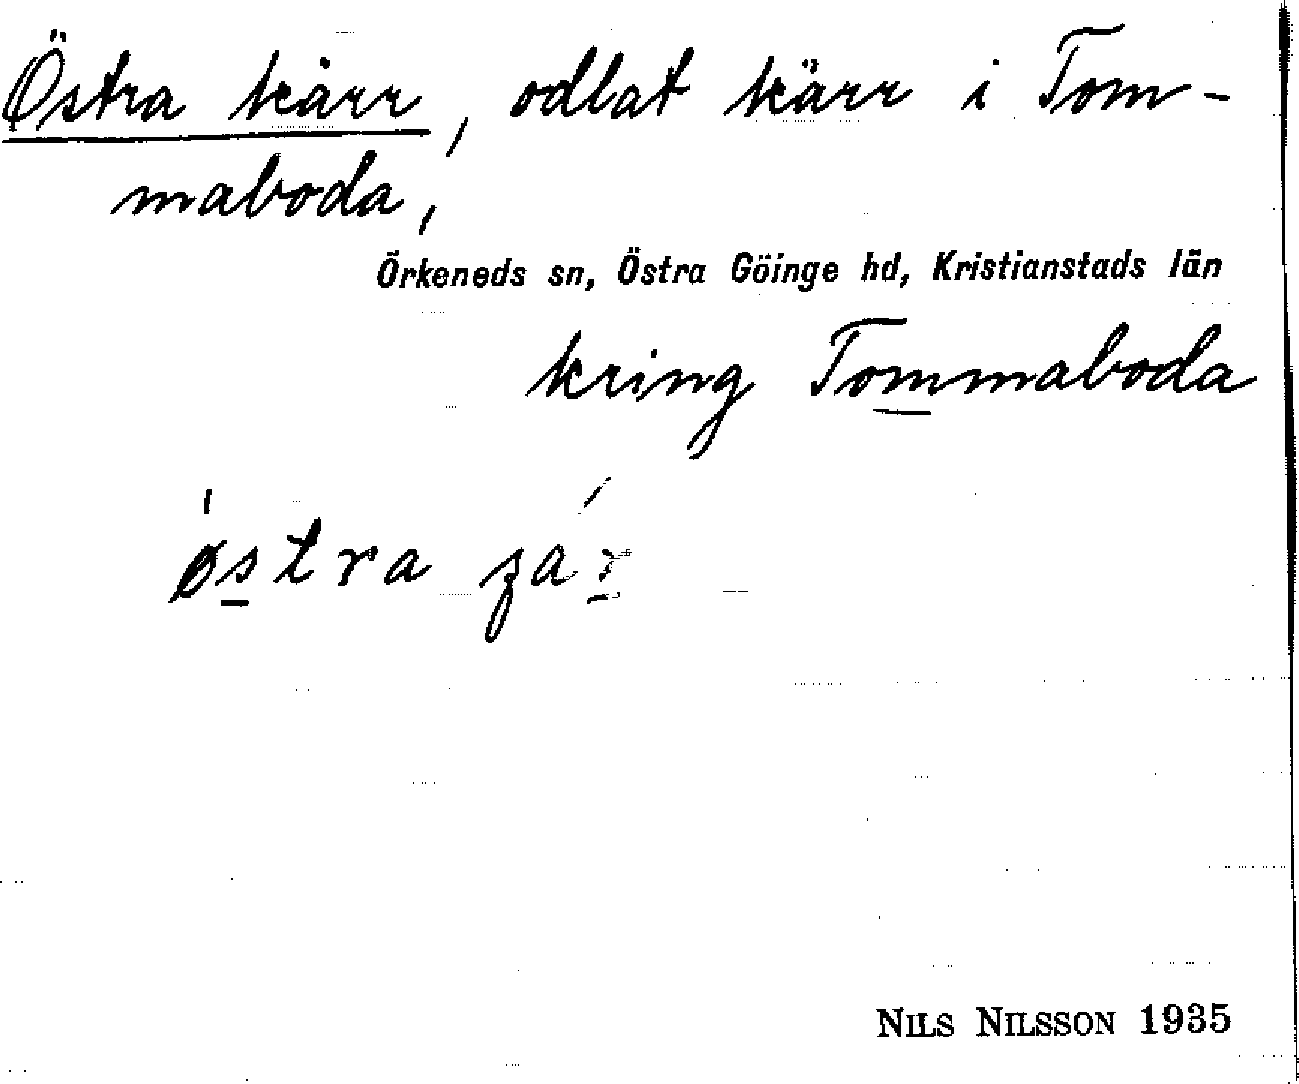 Östra kärr, odlat kärr i Tom-
maboda,
Örkeneds sn, Östra Göinge hd, Kristianstads län
kring Tommaboda
østra
NILS NILSSON 1935